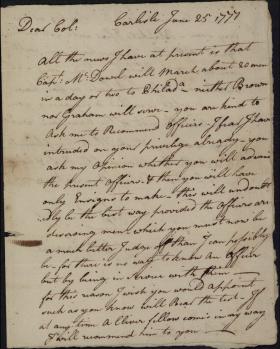 Dear Col: Carlisle June 25 1777
All the news I have at present is that
Capt. McDowel will March about 20 men
in a day or two to Philada neither Brown
nor Graham will serve - you are kind to
Ask me to Recommend Officers - I fear I have
intruded on your privilege already - you
ask my Opinion whether you will advance
the present Officers - & then you will have
only Ensigns to make - this will undoubt
edly be the best way provided the Officers are
deserving men which you must now be
a much better Judge of than I can possibly
be - for there is no way to know an Officer
but by being in Service with them
for this reason I wish you would appoint
such as you know will Bear the test - If
at any time A Clever fellow comes in my way
I will recommend him to you